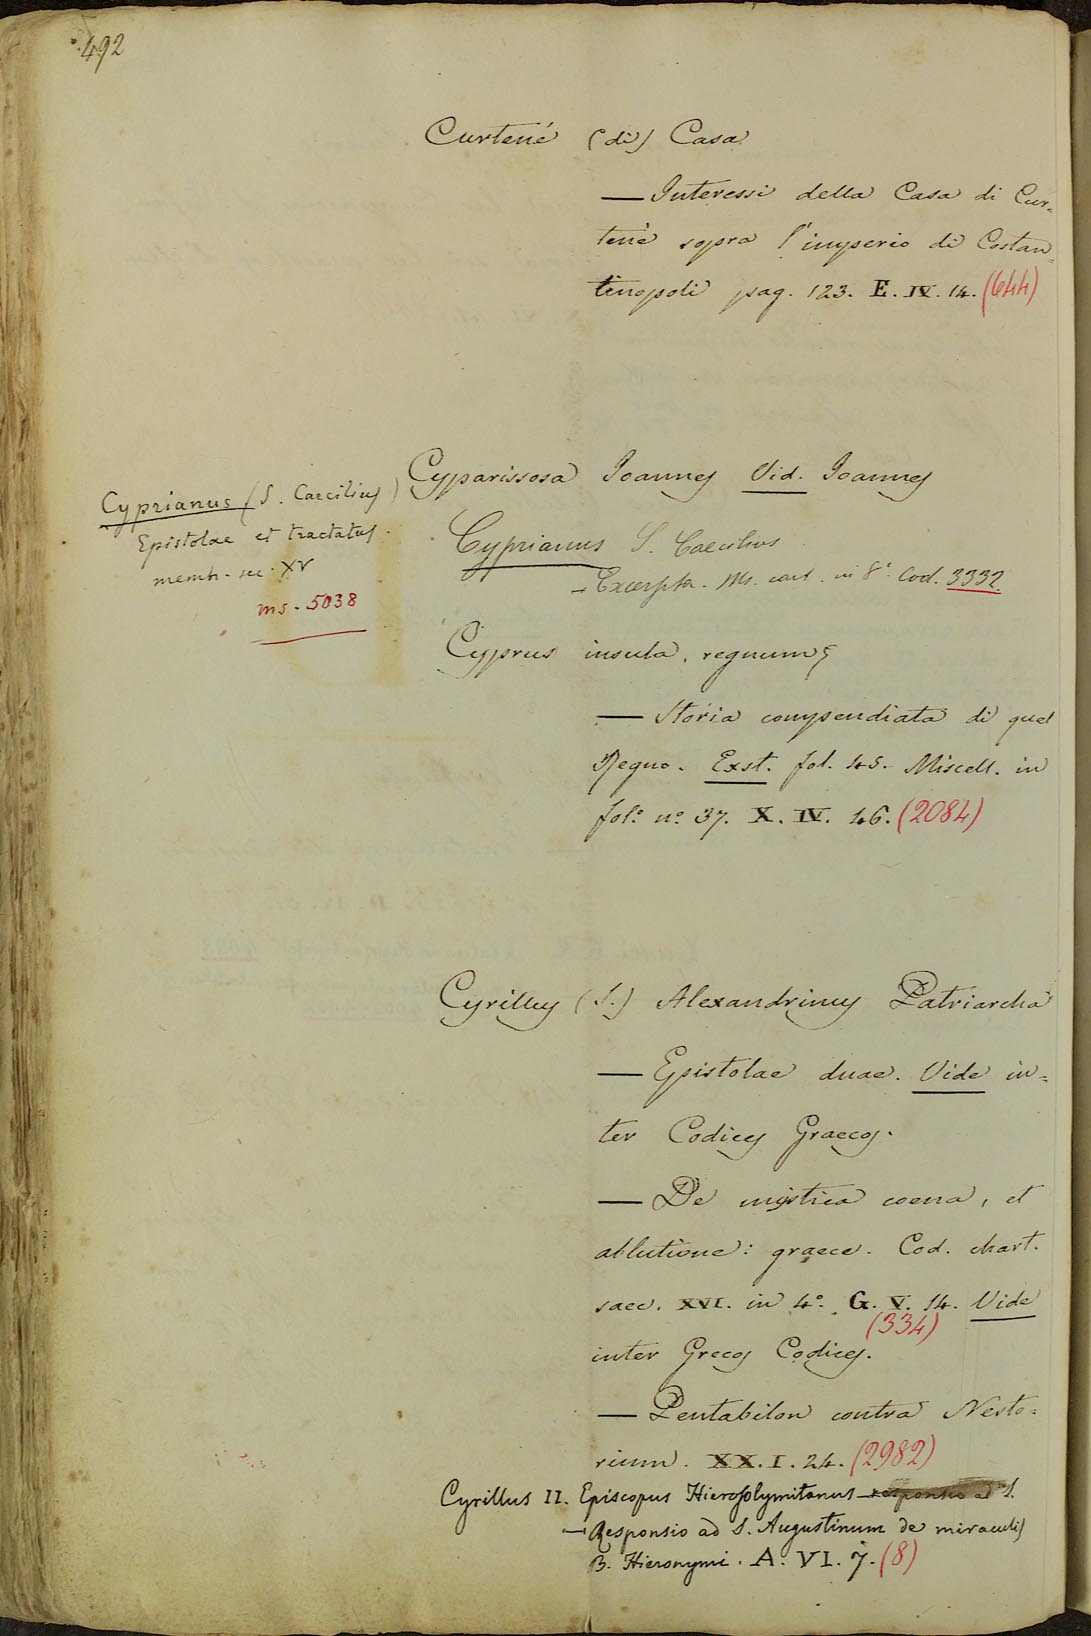 492
Curtené (di) Casa
— Interessi della Casa di Cur-
tenè sopra l'imperio di Costan-
tinopoli pag. 123. E. IV. 14. (644)
Cyparissosa Joannes Vid. Joannes
Cyprianus (S. Caecilius)
Epistolae et tractatus.
memb. sec. XV
ms. 5038
Cyprianus S. Caecilius
— Excerpta. Ms. cart. in 8° Cod. 3332.
Cyprus insula, regnum
— Storia compendiata di quel
Regno. Exst. fol. 45. Miscell. in
fol° n° 37. X. IV. 46. (2084)
Cyrillus (S.) Alexandrinus Patriarcha
— Epistolae duae. Vide in-
ter Codices Graecos.
— De mistica coena, et
ablutione: graece. Cod. chart.
saec. XVI. in 4° G. V. 14. Vide
(334)
inter Grecos Codices.
— Pentabilon contra Nesto-
rium. XX. I. 24. (2982)
Cyrillus II. Episcopus Hierosolymitanus — responsio ad S.
— Responsio ad S. Augustinum de miraculis
B. Hieronymi. A. VI. 7. (8)